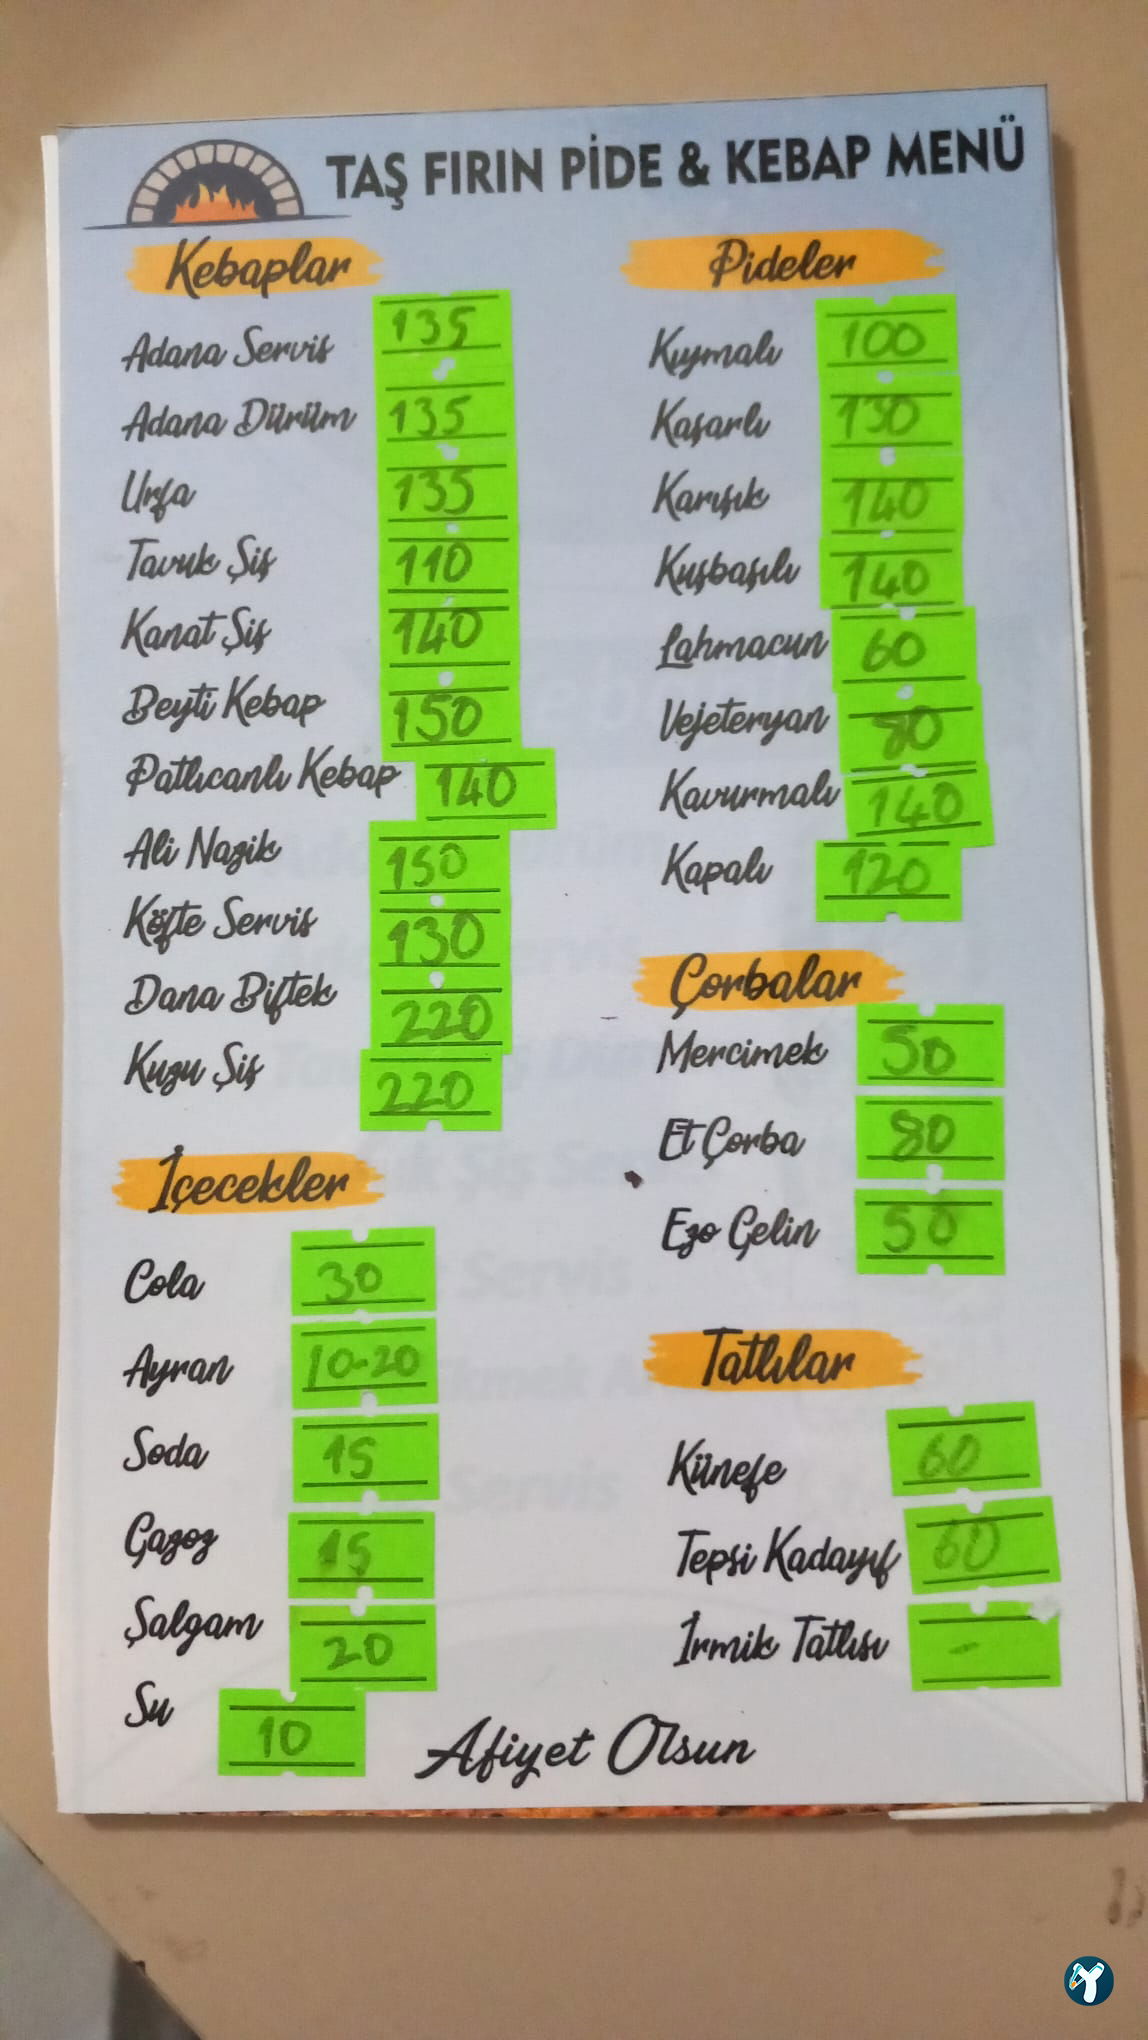 TAŞ FIRIN PİDE & KEBAP MENÜ
Kebaplar
Adana Servis 135
Adana Dürüm 135
Urfa 135
Tavuk Şiş 110
Kanat Şiş 140
Beyti Kebap 150
Patlıcanlı Kebap 140
Ali Nazik 150
Köfte Servis 130
Dana Biftek 220
Kuzu Şiş 220
İçecekler
Cola 30
Ayran 10-20
Soda 15
Gazoz 15
Şalgam 20
Su 10
Pideler
Kıymalı 100
Kaşarlı 130
Karışık 140
Kuşbaşılı 140
Lahmacun 60
Vejeteryan 80
Kavurmalı 140
Kapalı 120
Çorbalar
Mercimek 50
Et Çorba 80
Ezo Gelin 50
Tatlılar
Künefe 60
Tepsi Kadayıf 60
İrmik Tatlısı -
Afiyet Olsun